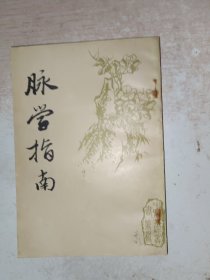 脉学指南